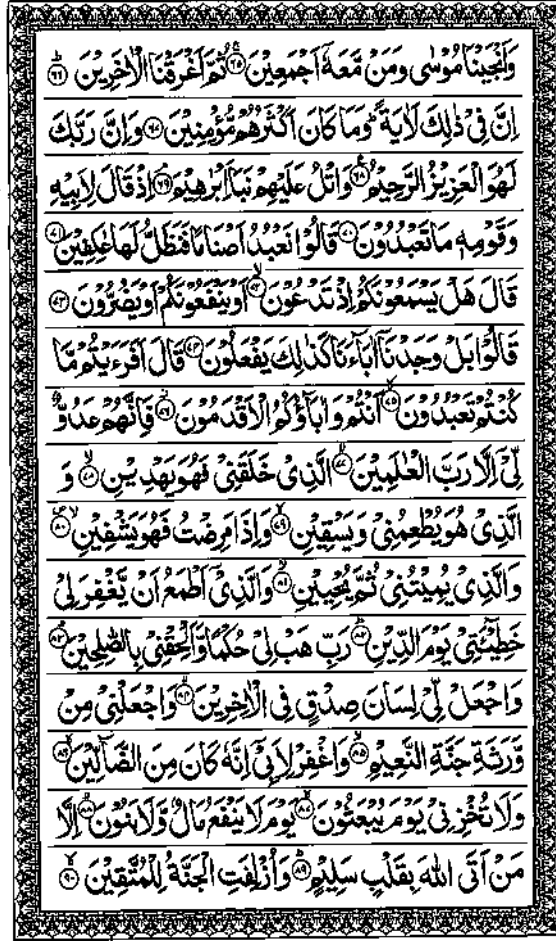 وَاَنْجَيْنَا مُوْسٰى وَمَنْ مَّعَهٗٓ اَجْمَعِيْنَ ﴿٦٥﴾ ثُمَّ اَغْرَقْنَا الْاٰخَرِيْنَ ﴿٦٦﴾
اِنَّ فِيْ ذٰلِكَ لَاٰيَةً ؕ وَمَا كَانَ اَكْثَرُهُمْ مُّؤْمِنِيْنَ ﴿٦٧﴾ وَاِنَّ رَبَّكَ
لَهُوَ الْعَزِيْزُ الرَّحِيْمُ ﴿٦٨﴾ وَاتْلُ عَلَيْهِمْ نَبَاَ اِبْرٰهِيْمَ ﴿٦٩﴾ اِذْ قَالَ لِاَبِيْهِ
وَقَوْمِهٖ مَا تَعْبُدُوْنَ ﴿٧٠﴾ قَالُوْا نَعْبُدُ اَصْنَامًا فَنَظَلُّ لَهَا عٰكِفِيْنَ ﴿٧١﴾
قَالَ هَلْ يَسْمَعُوْنَكُمْ اِذْ تَدْعُوْنَ ﴿٧٢﴾ اَوْ يَنْفَعُوْنَكُمْ اَوْ يَضُرُّوْنَ ﴿٧٣﴾
قَالُوْا بَلْ وَجَدْنَآ اٰبَآءَنَا كَذٰلِكَ يَفْعَلُوْنَ ﴿٧٤﴾ قَالَ اَفَرَءَيْتُمْ مَّا
كُنْتُمْ تَعْبُدُوْنَ ﴿٧٥﴾ اَنْتُمْ وَاٰبَآؤُكُمُ الْاَقْدَمُوْنَ ﴿٧٦﴾ فَاِنَّهُمْ عَدُوٌّ
لِّيْٓ اِلَّا رَبَّ الْعٰلَمِيْنَ ﴿٧٧﴾ الَّذِيْ خَلَقَنِيْ فَهُوَ يَهْدِيْنِ ﴿٧٨﴾ وَ
الَّذِيْ هُوَ يُطْعِمُنِيْ وَيَسْقِيْنِ ﴿٧٩﴾ وَاِذَا مَرِضْتُ فَهُوَ يَشْفِيْنِ ﴿٨٠﴾
وَالَّذِيْ يُمِيْتُنِيْ ثُمَّ يُحْيِيْنِ ﴿٨١﴾ وَالَّذِيْٓ اَطْمَعُ اَنْ يَّغْفِرَ لِيْ
خَطِيْٓئَتِيْ يَوْمَ الدِّيْنِ ﴿٨٢﴾ رَبِّ هَبْ لِيْ حُكْمًا وَّاَلْحِقْنِيْ بِالصّٰلِحِيْنَ ﴿٨٣﴾
وَاجْعَلْ لِّيْ لِسَانَ صِدْقٍ فِي الْاٰخِرِيْنَ ﴿٨٤﴾ وَاجْعَلْنِيْ مِنْ
وَّرَثَةِ جَنَّةِ النَّعِيْمِ ﴿٨٥﴾ وَاغْفِرْ لِاَبِيْٓ اِنَّهٗ كَانَ مِنَ الضَّآلِّيْنَ ﴿٨٦﴾
وَلَا تُخْزِنِيْ يَوْمَ يُبْعَثُوْنَ ﴿٨٧﴾ يَوْمَ لَا يَنْفَعُ مَالٌ وَّلَا بَنُوْنَ ﴿٨٨﴾ اِلَّا
مَنْ اَتَى اللّٰهَ بِقَلْبٍ سَلِيْمٍ ﴿٨٩﴾ وَاُزْلِفَتِ الْجَنَّةُ لِلْمُتَّقِيْنَ ﴿٩٠﴾